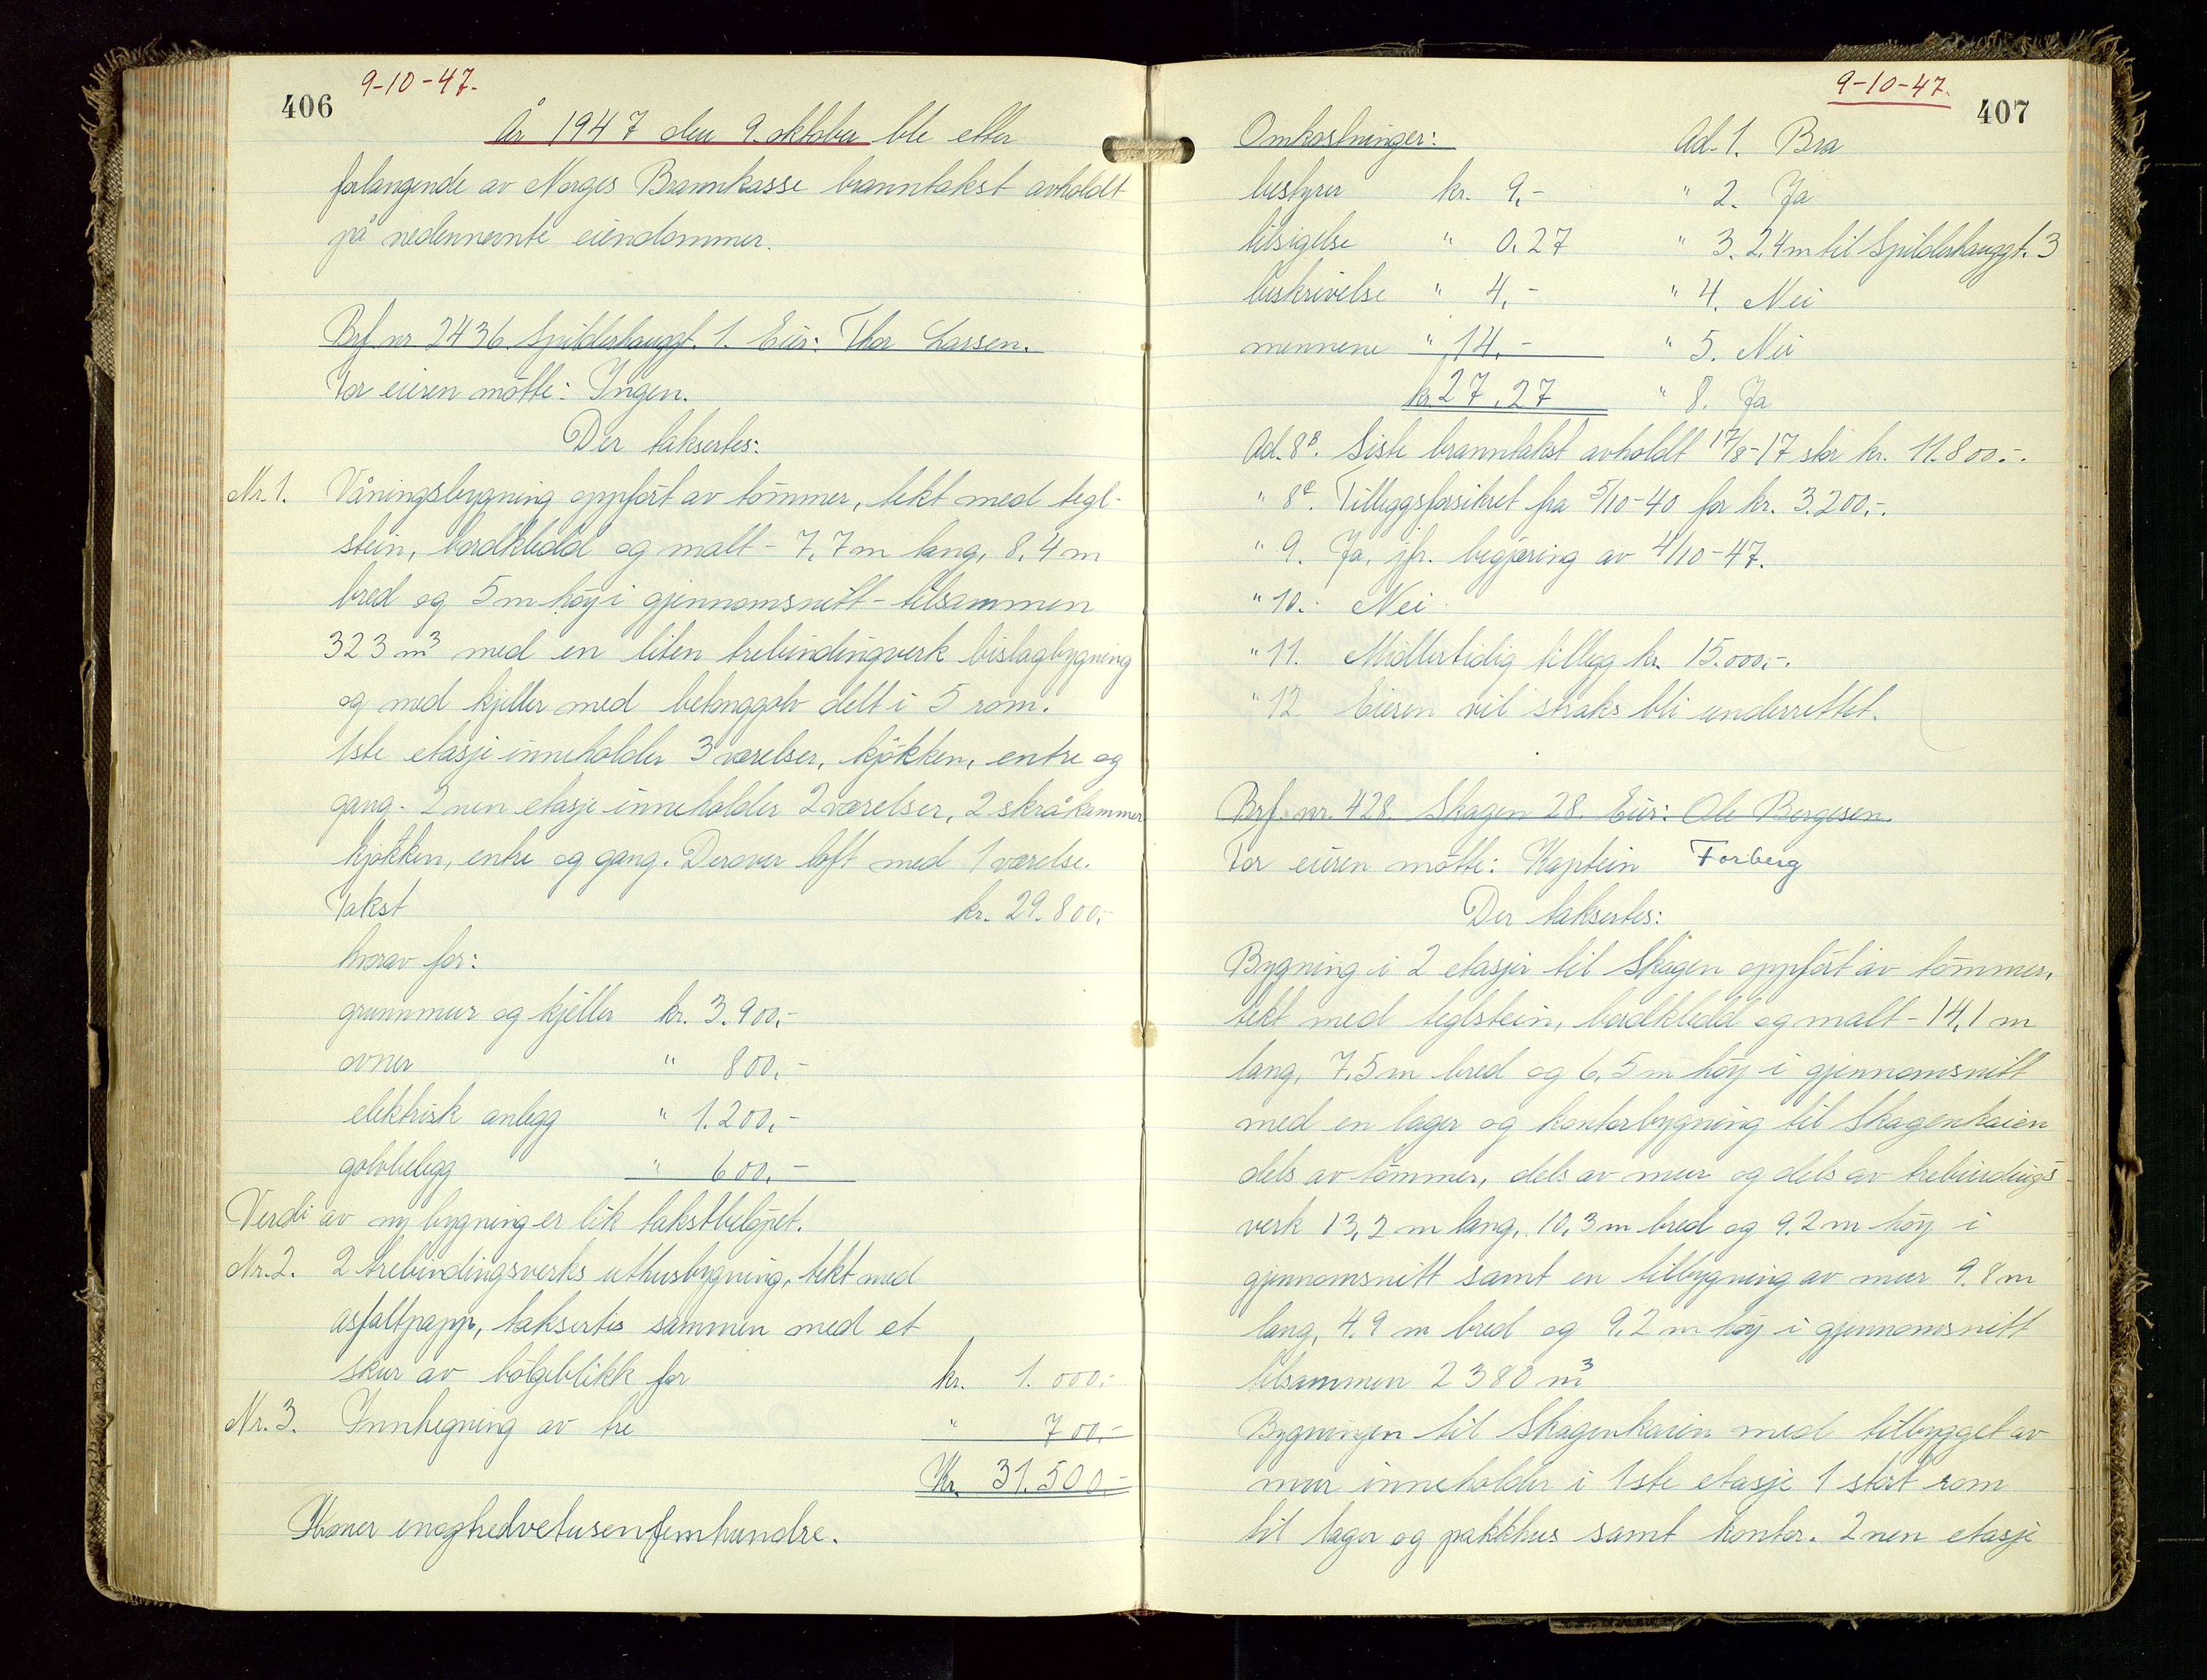 9-10-47.
406
År 1947 den 9. oktober ble etter
forlangende av Norges Brannkasse branntakst avholdt
på nedennevnte eiendommer.
Brf. nr 2436. Spilderhauggt. 1. Eier: Thor Larsen.
For eieren møtte: Ingen.
Der taksertes:
Nr. 1. Våningsbygning oppført av tømmer, tekt med tegl-
stein, bordkledd og malt - 7,7 m lang, 8,4 m
bred og 5 m høy i gjennomsnitt - tilsammen
323 m³ med en liten trebindingverk bislagbygning
og med kjeller med betonggolv delt i 5 rom.
1ste etasje inneholder 3 værelser, kjøkken, entre og
gang - 2nen etasje inneholder 2 værelser, 2 skråkammer
kjøkken, entre og gang. Derover loft med 1 værelse.
Takst kr. 29.800,-
hvorav for:
grunnmur og kjeller kr. 3.900,-
ovner " 800,-
elektrisk anlegg " 1.200,-
golvbelegg " 600,-
Verdi av ny bygning er lik takstbeløpet.
Nr. 2. 2 trebindingsverks uthusbygning, tekt med
asfaltpapp, taksertes sammen med et
skur av bølgeblikk for kr. 1.000,-
Nr. 3. Innhegning av tre " 700,-
Kr. 31.500,-
Kroner enoghedvetusenfemhundre.
9-10-47.
407
Omkostninger: Ad. 1. Bra
bestyrer kr. 9,- " 2. Ja
tilsigelse " 0.27 " 3. 2,4 m til Spilderhauggt. 3
beskrivelse " 4,- " 4. Nei
mennene " 14,- " 5. Nei
kr. 27,27 " 8. Ja
Ad. 8ᴮ. Siste branntakst avholdt 17/8-17 stor kr. 11.800.-.
" 8ᶜ. Tilleggsforsikret fra 5/10-40 for kr. 3.200,-.
" 9. Ja, jfr. begjæring av 4/10-47.
" 10.- Nei
" 11. Midlertidig tillegg kr. 15.000,-.
" 12 Eieren vil straks bli underrettet.
Brf. nr. 428. Skagen 28. Eier: Ole Bergesen.
For eieren møtte: Kaptein Forberg
Der taksertes:
Bygning i 2 etasjer til Skagen oppført av tømmer,
tekt med teglstein, bordkledd og malt - 14,1 m
lang, 7,5 m bred og 6,5 m høy i gjennomsnitt
med en lager og kontorbygning til Skagenkaien
dels av tømmer, dels av mur og dels av trebindings-
verk 13,2 m lang, 10,3 m bred og 9,2 m høy i
gjennomsnitt samt en tilbygning av mur 9.8 m
lang, 4.9 m bred og 9,2 m høy i gjennomsnitt
tilsammen 2380 m³
Bygningen til Skagenkaien med tilbygget av
mur inneholder i 1ste etasje 1 stort rom
til lager og pakkhus samt kontor. 2nen etasje